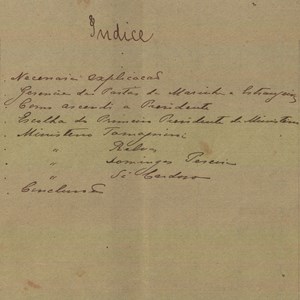 Indice
Necessaria explicação
Gerencia da Pasta da Marinha e Estrangeiros
Como ascendi a Presidente
Escolha do Primeiro Presidente de Ministros
Ministerio Tamagnini
" Relvas
" Domingos Pereira
" Sá Cardoso
Conclusão